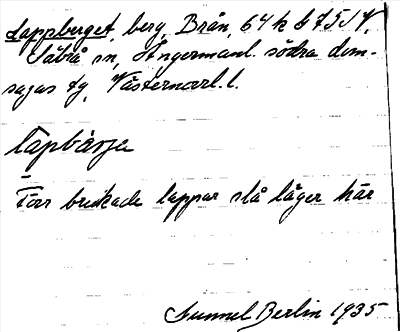 Lappberget, berg, Brån, 64 h 6 7515 V,
Säbrå sn, Ångermanl. södra dom-
sagas tg, Västernorrl. l.
lapbärje
Förr brukade lappar slå läger här
Gunnel Berlin 1935